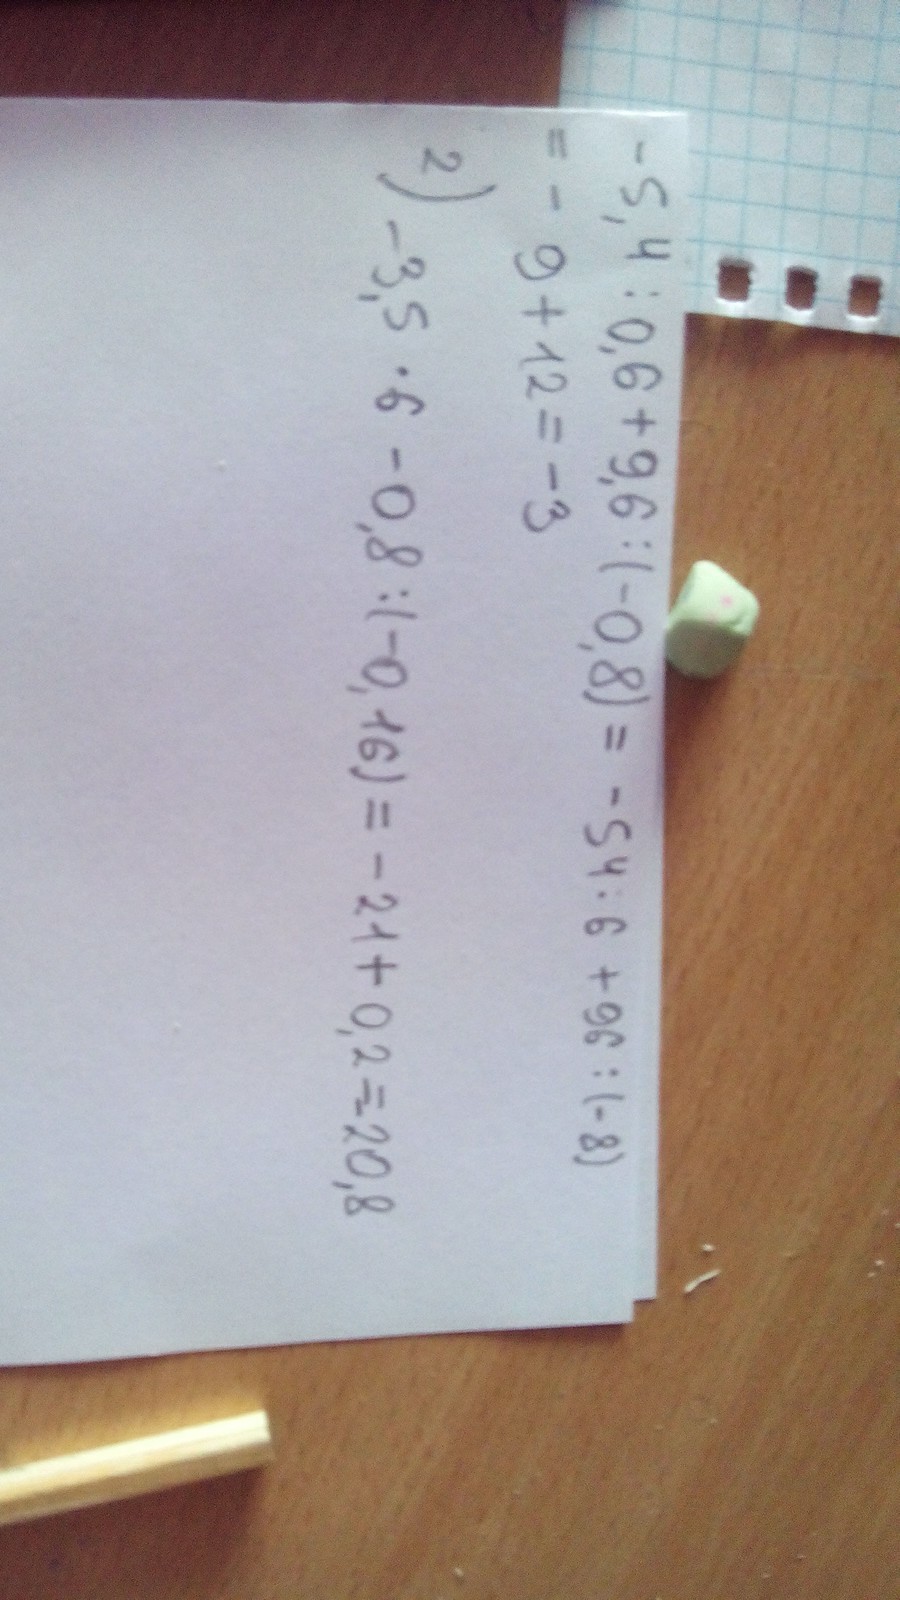 -5,4:0,6+9,6:(-0,8) = -54:6 +96:(-8)
= - 9+12=-3
2) -3,5·6 -0,8:(-0,16)=-21+0,2=20,8